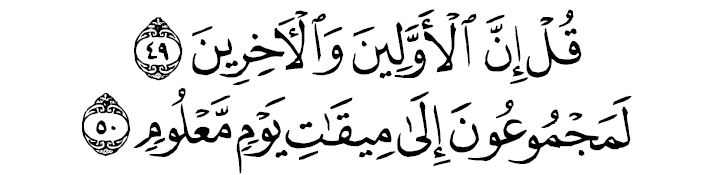 قُلْ إِنَّ ٱلْأَوَّلِينَ وَٱلْـَٔاخِرِينَ ٤٩
لَمَجْمُوعُونَ إِلَىٰ مِيقَـٰتِ يَوْمٍ مَّعْلُومٍ ٥٠